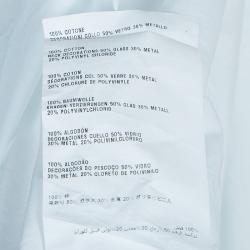 100% COTONE
DECORAZIONI COLLO 50% VETRO 30% METALLO
100% COTTON
NECK DECORATIONS 50% GLASS 30% METAL
20% POLYVINYL CHLORIDE
100% COTON
DECORATIONS COL 50% VERRE 30% METAL
20% CHLORURE DE POLYVINYLE
100% BAUMWOLLE
KRAGEN-VERZIERUNGEN 50% GLAS 30% METALL
20% POLYVINYLCHLORID
100% ALGODON
DECORACIONES CUELLO 50% VIDRIO
30% METAL 20% POLIVINILCLORURO
100% ALGODÃO
DECORAÇÕES DO PESCOÇO 50% VIDRO
30% METAL 20% CLORETO DE POLIVINILO
100% 綿
50% ガラス 30% 金属 20%